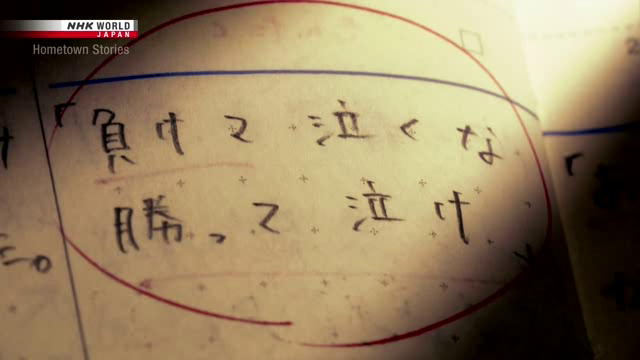 NHK WORLD
JAPAN
Hometown Stories
「負けて泣くな
勝って泣け